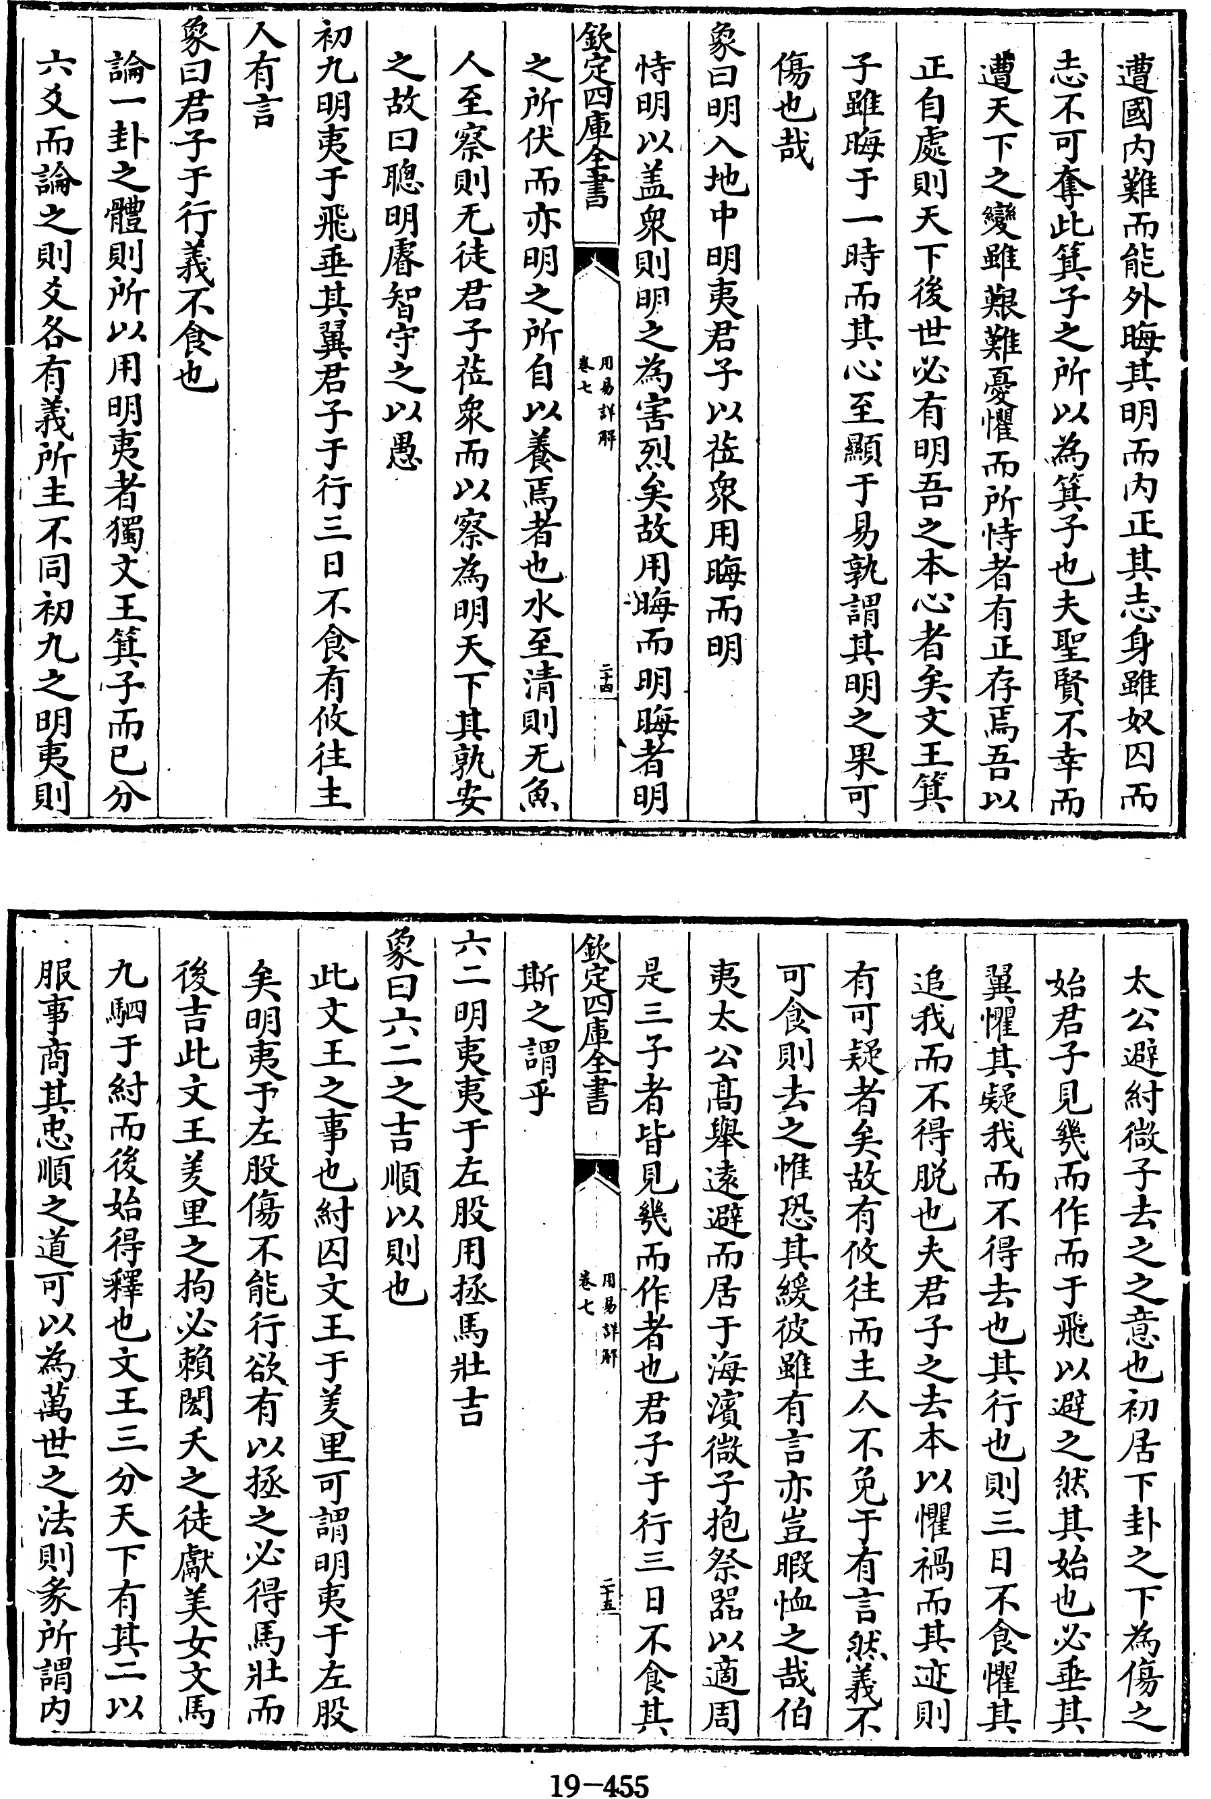 遭國内難而能外晦其明而内正其志身雖奴囚而
志不可奪此箕子之所以為箕子也夫聖賢不幸而
遭天下之變雖艱難憂懼而所恃者有正存焉吾以
正自處則天下後世必有明吾之本心者矣文王箕
子雖晦于一時而其心至顯于易孰謂其明之果可
傷也哉
象曰明入地中明夷君子以莅衆用晦而明
恃明以盖衆則明之為害烈矣故用晦而明晦者明
欽定四庫全書
周易詳解
卷七
二十四
之所伏而亦明之所自以養焉者也水至清則无魚
人至察則无徒君子莅衆而以察為明天下其孰安
之故曰聰明睿智守之以愚
初九明夷于飛垂其翼君子于行三日不食有攸往主
人有言
象曰君子于行義不食也
論一卦之體則所以用明夷者獨文王箕子而已分
六爻而論之則爻各有義所主不同初九之明夷則
太公避紂微子去之之意也初居下卦之下為傷之
始君子見幾而作而于飛以避之然其始也必垂其
翼懼其疑我而不得去也其行也則三日不食懼其
追我而不得脱也夫君子之去本以懼禍而其迹則
有可疑者矣故有攸往而主人不免于有言然義不
可食則去之惟恐其緩彼雖有言亦豈暇恤之哉伯
夷太公高舉遠避而居于海濱微子抱祭器以適周
是三子者皆見幾而作者也君子于行三日不食其
欽定四庫全書
周易詳解
卷七
二十五
斯之謂乎
六二明夷夷于左股用拯馬壯吉
象曰六二之吉順以則也
此文王之事也紂囚文王于羑里可謂明夷于左股
矣明夷于左股傷不能行欲有以拯之必得馬壯而
後吉此文王羑里之拘必賴閎夭之徒獻美女文馬
九駟于紂而後始得釋也文王三分天下有其二以
服事商其忠順之道可以為萬世之法則彖所謂内
19-455